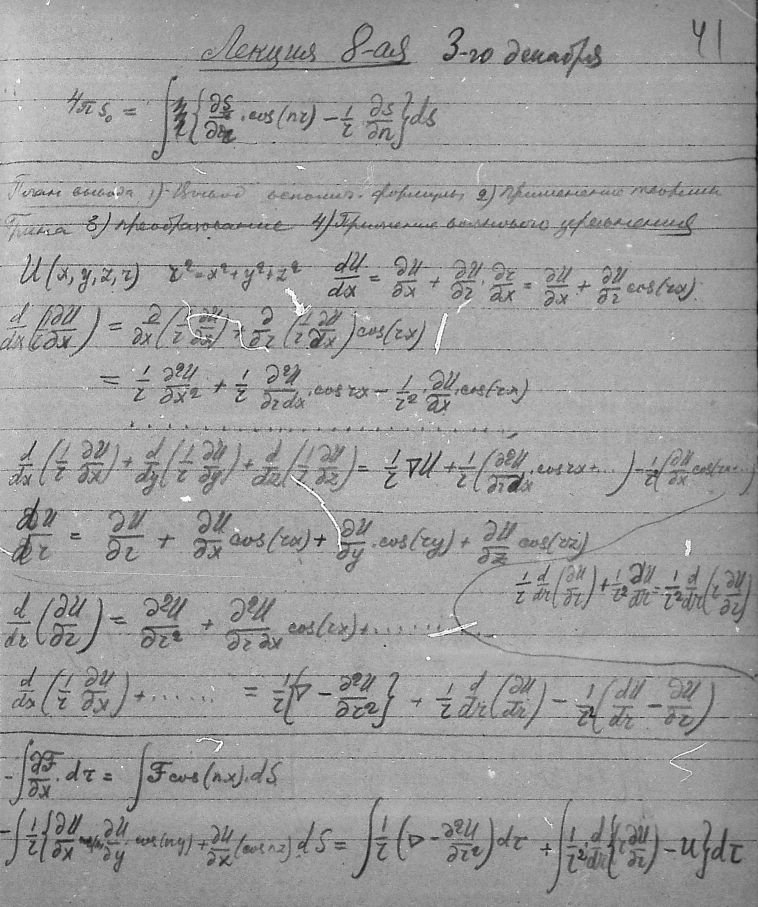 41
Лекция 8-ая 3-го декабря
4πs₀ = ∫ { ∂s/∂r · cos(nr) − 1/r ∂s/∂n } ds
План вывода 1) Вывод вспомог. формулы 2) Применение теоремы
Грина 3) преобразование 4) Применение волнового уравнения
U(x, y, z, r) r² = x² + y² + z² dU/dx = ∂U/∂x + ∂U/∂r · ∂r/∂x = ∂U/∂x + ∂U/∂r cos(rx)
d/dx (1/r ∂U/∂x) = ∂/∂x (1/r ∂U/∂x) + ∂/∂r (1/r ∂U/∂x) cos(rx)
= 1/r ∂²U/∂x² + 1/r ∂²U/∂r∂x · cos rx − 1/r² · ∂U/∂x · cos(rx)
. . . . . . . . . . . . . . . . . . .
d/dx (1/r ∂U/∂x) + d/dy (1/r ∂U/∂y) + d/dz (1/r ∂U/∂z) = 1/r ∇U + 1/r (∂²U/∂r∂x · cos rx + ...) − 1/r² (∂U/∂x cos rx + ...)
dU/dr = ∂U/∂r + ∂U/∂x cos(rx) + ∂U/∂y · cos(ry) + ∂U/∂z cos(rz)
1/r d/dr (∂U/∂r) + 1/r² ∂U/∂r = 1/r² d/dr (r ∂U/∂r)
d/dr (∂U/∂r) = ∂²U/∂r² + ∂²U/∂r∂x cos(rx) + ........
d/dx (1/r ∂U/∂x) + ...... = 1/r {∇ − ∂²U/∂r²} + 1/r d/dr (∂U/∂r) − 1/r² (dU/dr − ∂U/∂r)
− ∫ ∂F/∂x · dτ = ∫ F cos(nx) · dS
− ∫ 1/r { ∂U/∂x ∂U/∂y · cos(ny) + ∂U/∂x (cos nz) dS = ∫ 1/r (∇ − ∂²U/∂r²) dτ + ∫ 1/r² · d/dr { (r ∂U/∂r) − U } dτ